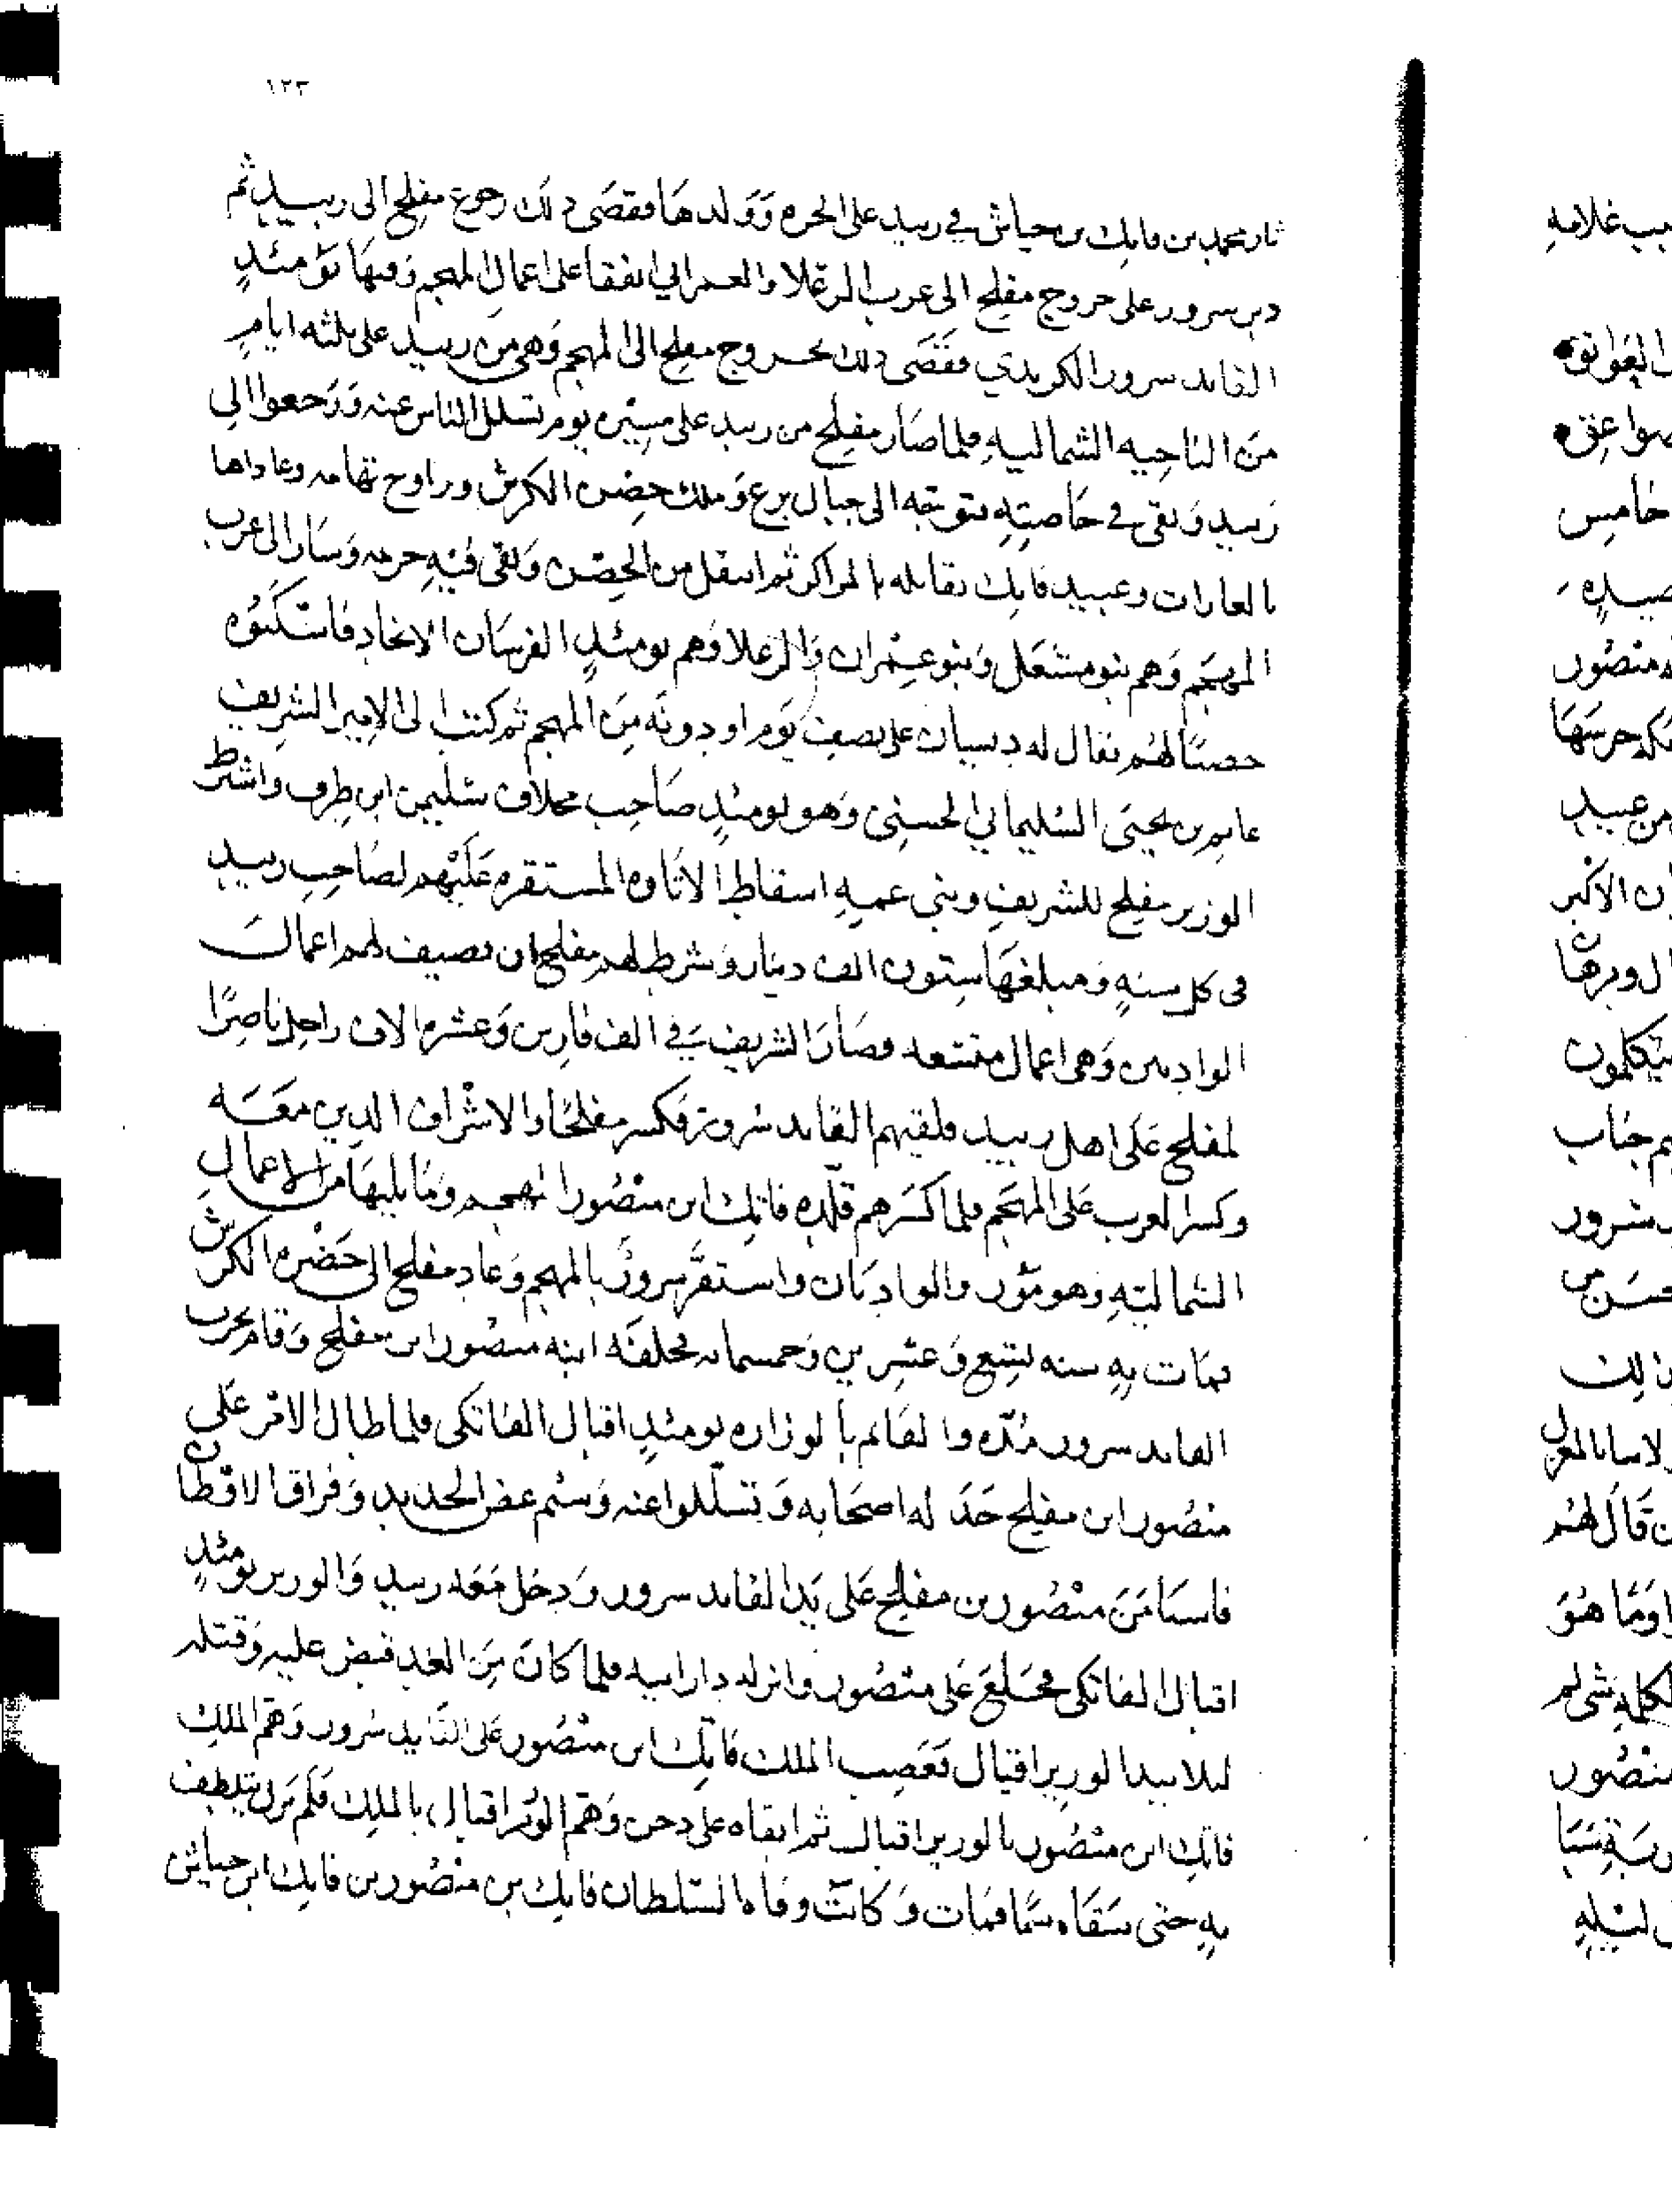 ١٢٣
ثار محمد بن فاتك بن جياش في زبيد على الحره وولدها فقضى ذلك رجوع مفلح الى زبيد ثم
دبر سرور على خروج مفلح الى عرب الزعلا والعمراني اتفقا على اعمال المهجم وفيها يومئذٍ
القايد سرور الكريدي فقضى ذلك بخروج مفلح الى المهجم وهي من زبيد على ثلثه ايامٍ
من الناحيه الشماليهِ فلما صار مفلح من زبيد على مسيره يوم تسلل الناس عنه ورجعوا الى
زبيد وبقى في خاصتِهِ فتوجه الى جبال برع وملك حصن الكرش وراوح تهامه وغاداها
بالغارات وعبيد فاتك تقابله بالمراكز ثم انتقل من الحصن وبقى فيهِ حرمه وسار الى عرب
المهجم وهم بنو مشعل وبنو عمران والزعلا وهم يومئذٍ الفرسان الانجاد فاسْتكنوُه
حصنًا لهم يقال له دبسان على نصف يوم او دونه من المهجم ثم كتب الى الامير الشريف
غانم بن يحيى السليماني الحسني وهو يومئذٍ صاحب مخلاف سليمن ابن طرف واشترط
الوزير مفلح للشريف وبني عمهِ اسقاط الاتاوه المستقره عَليْهم لصاحب زبيد
في كل سنهٍ ومبلغها ستون الف دينار وشرط لهم مفلح ان يضيف لهم اعمال
الواديين وهي اعمال متسعه فصار الشريف في الف فارس وعشره الاف راجل ناصرًا
لمفلح على اهل زبيد فلقيهم القايد سرور فكسر مفلحًا والاشراف الذين معَه
وكسر العرب على المهجم فلما كسرهم قلّده فاتك ابن منصور المهجم وما يليها من الاعمالِ
الشماليهِ وهو مؤر والواديان واستقر سرورٌ بالمهجم وعاد مفلح الى حصن الكرش
فمات بهِ سنه تسع وعشرين وخمسمايه فخلفه ابنه منصور ابن مفلح وقام بحرب
القايد سرور مُدّه والقائم بالوزاره يومئذٍ اقبال الفاتكي فلما طال الامر على
منصور ابن مفلح خذله اصحابه وتسللوا عنه وسئم عض الحديد وفراق الاوطان
فاستامَنَ منصور بن مفلح على يد القايد سرور ودخل معه زبيد والوزير يومئذٍ
اقبال الفاتكي فخلع على منصور وانزله دار ابيه فلما كان من الغد قبض عليه وقتله
ليلا بيد الوزير اقبال فغضب الملك فاتك ابن منصور على القايد سرور وهم الملك
فاتك ابن منصور بالوزير اقبال ثم ابقاه على دخن وهم الوزير اقبال بالملك فلم يزل يتلطف
بهِ حتى سقاه سمًا فمات وكانت وفاه السلطان فاتك بن منصور بن فاتك ابن جياش